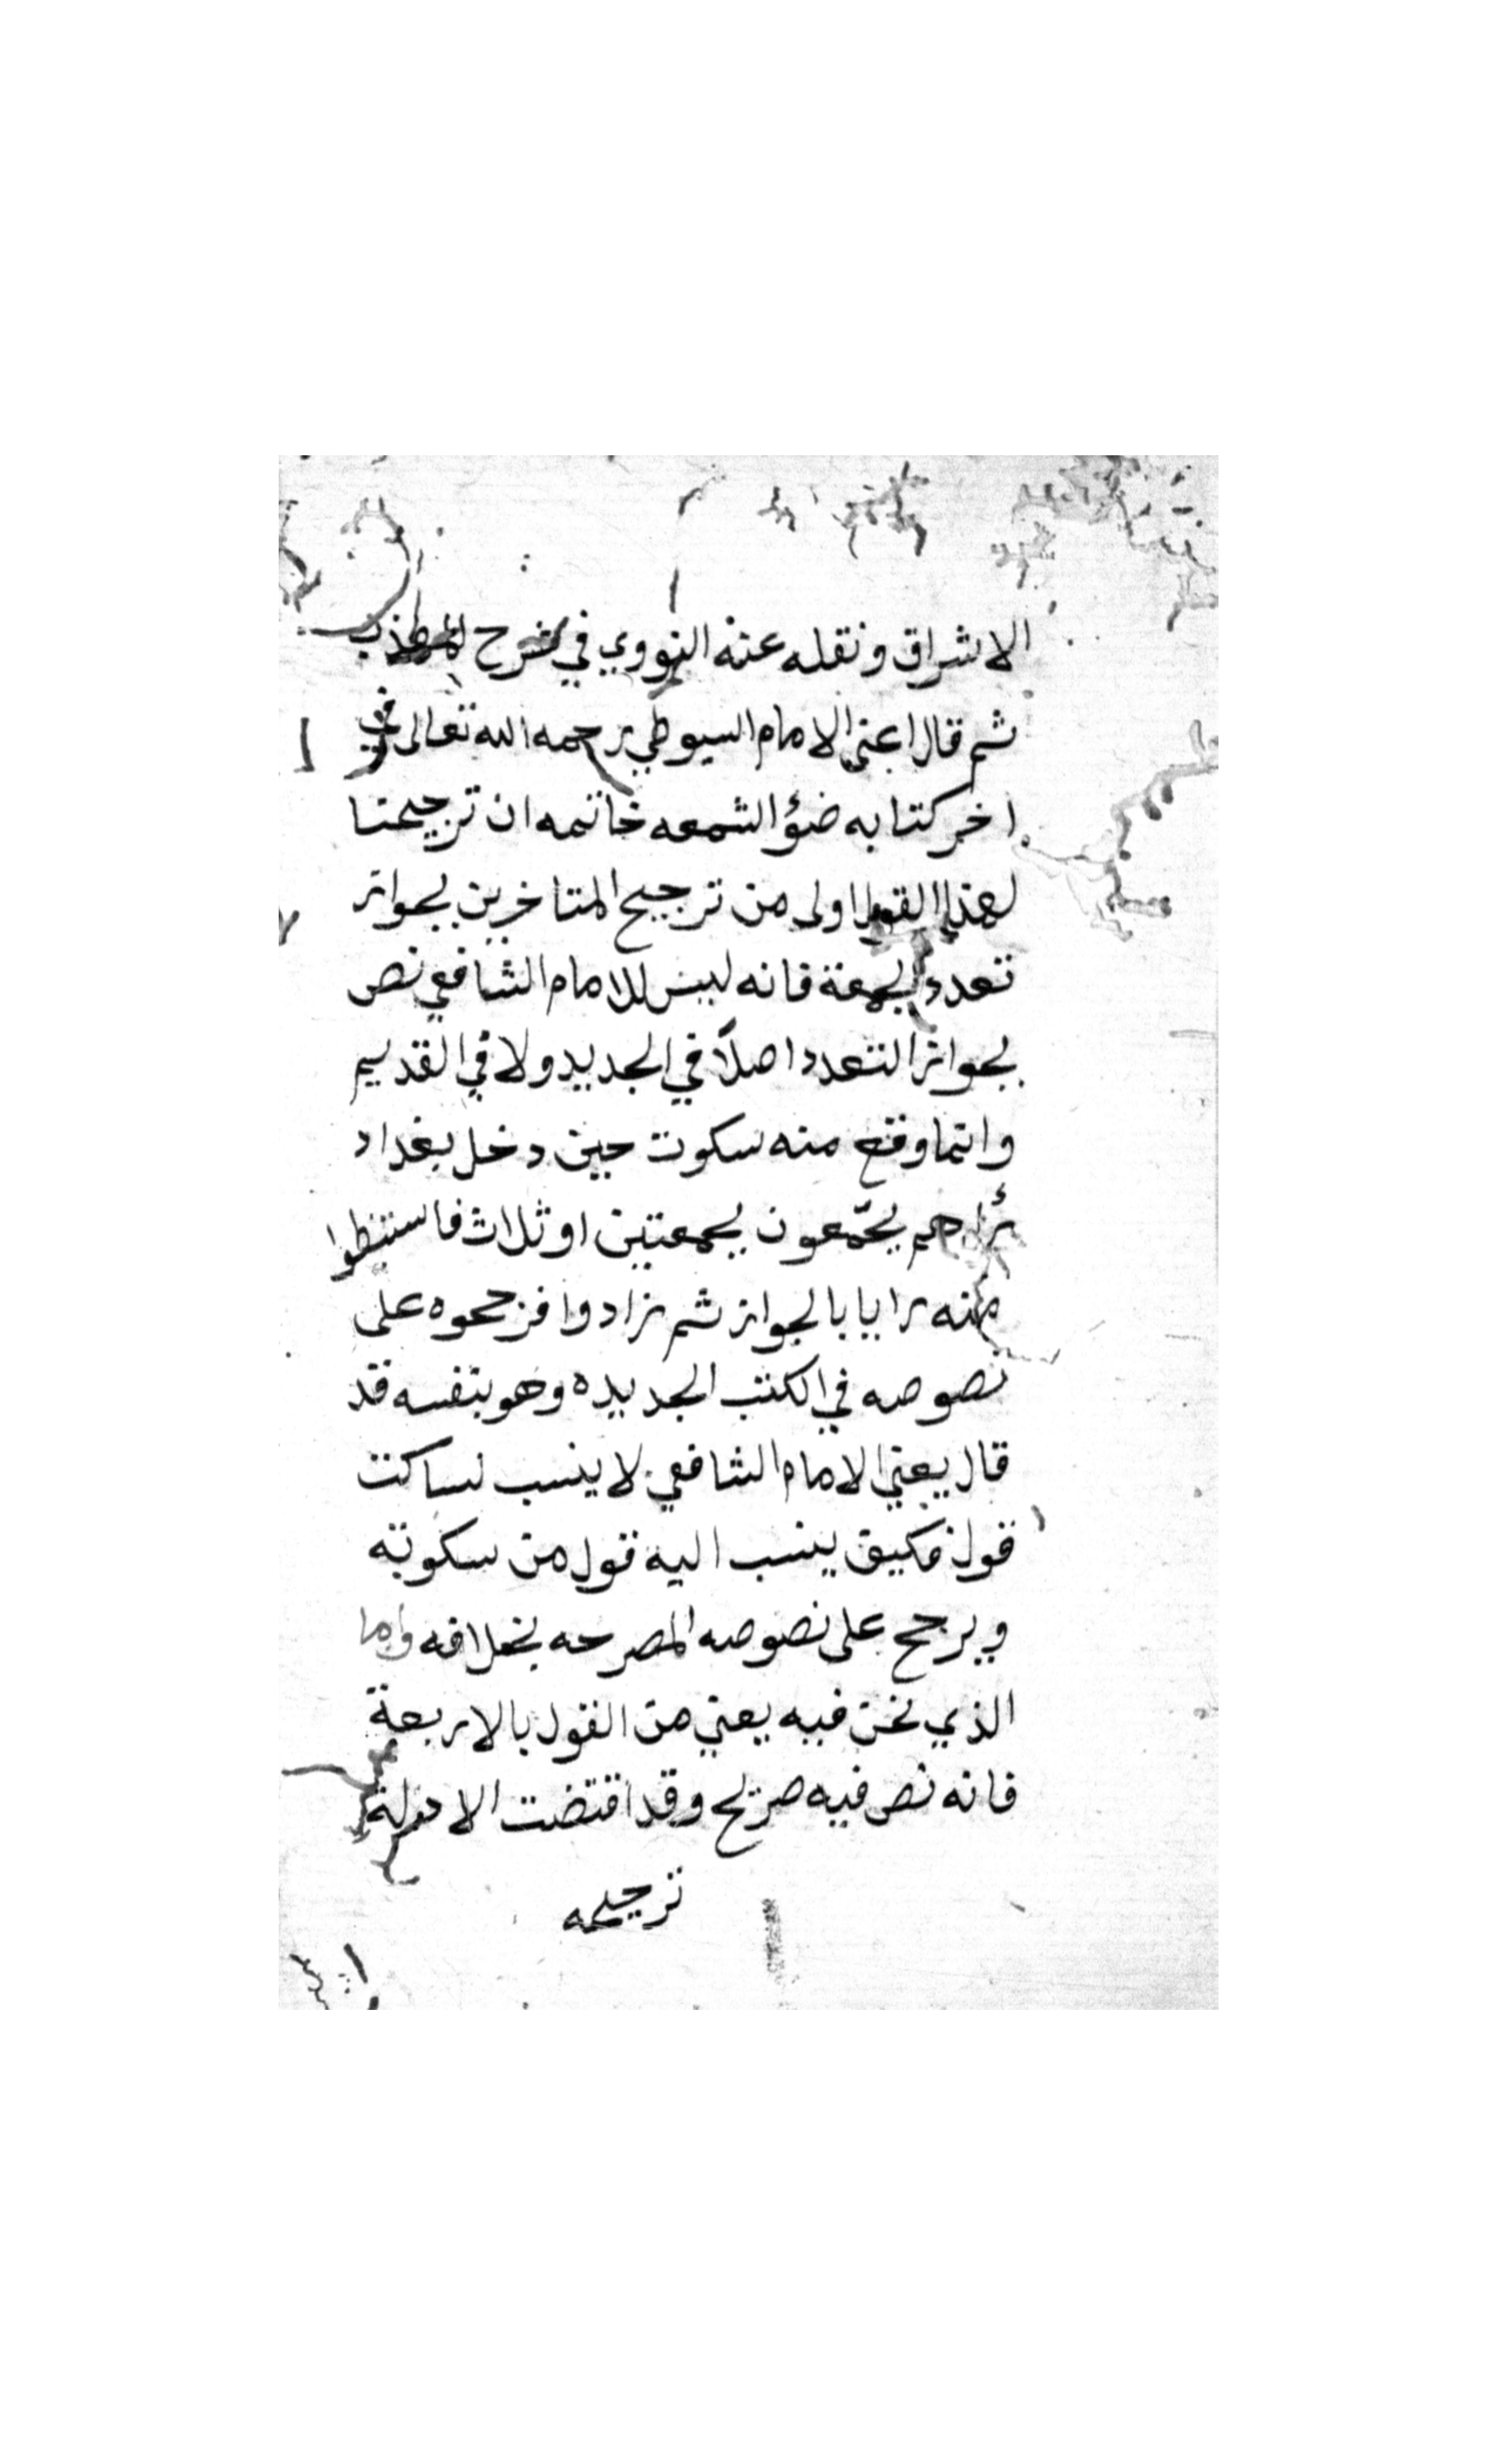 الاشراق ونقله عنه النووي في شرح المهذب
ثم قال اعنى الامام السيوطي رحمه الله تعالى في
اخر كتابه ضؤ الشمعه خاتمه ان ترجيحنا
لهذا القول اولى من ترجيح المتاخرين لجواز
تعدد الجمعة فانه ليس للامام الشافعي نص
بجواز التعدد اصلاً في الجديد ولا في القديم
وانما وقع منه سكوت حين دخل بغداد
رأهم يجمّعون بجمعتين او ثلاث فاستنبطوا
منه رايا بالجواز ثم زادوا فرجحوه على
نصوصه في الكتب الجديده وهو بنفسه قد
قال يعني الامام الشافعي لا ينسب لساكت
قول فكيف ينسب اليه قول من سكوته
ويرجح على نصوصه المصرحه بخلافه واما
الذي نحن فيه يعني من القول بالاربعة
فانه نص فيه صريح وقد اقتضت الادلة
ترجيحه